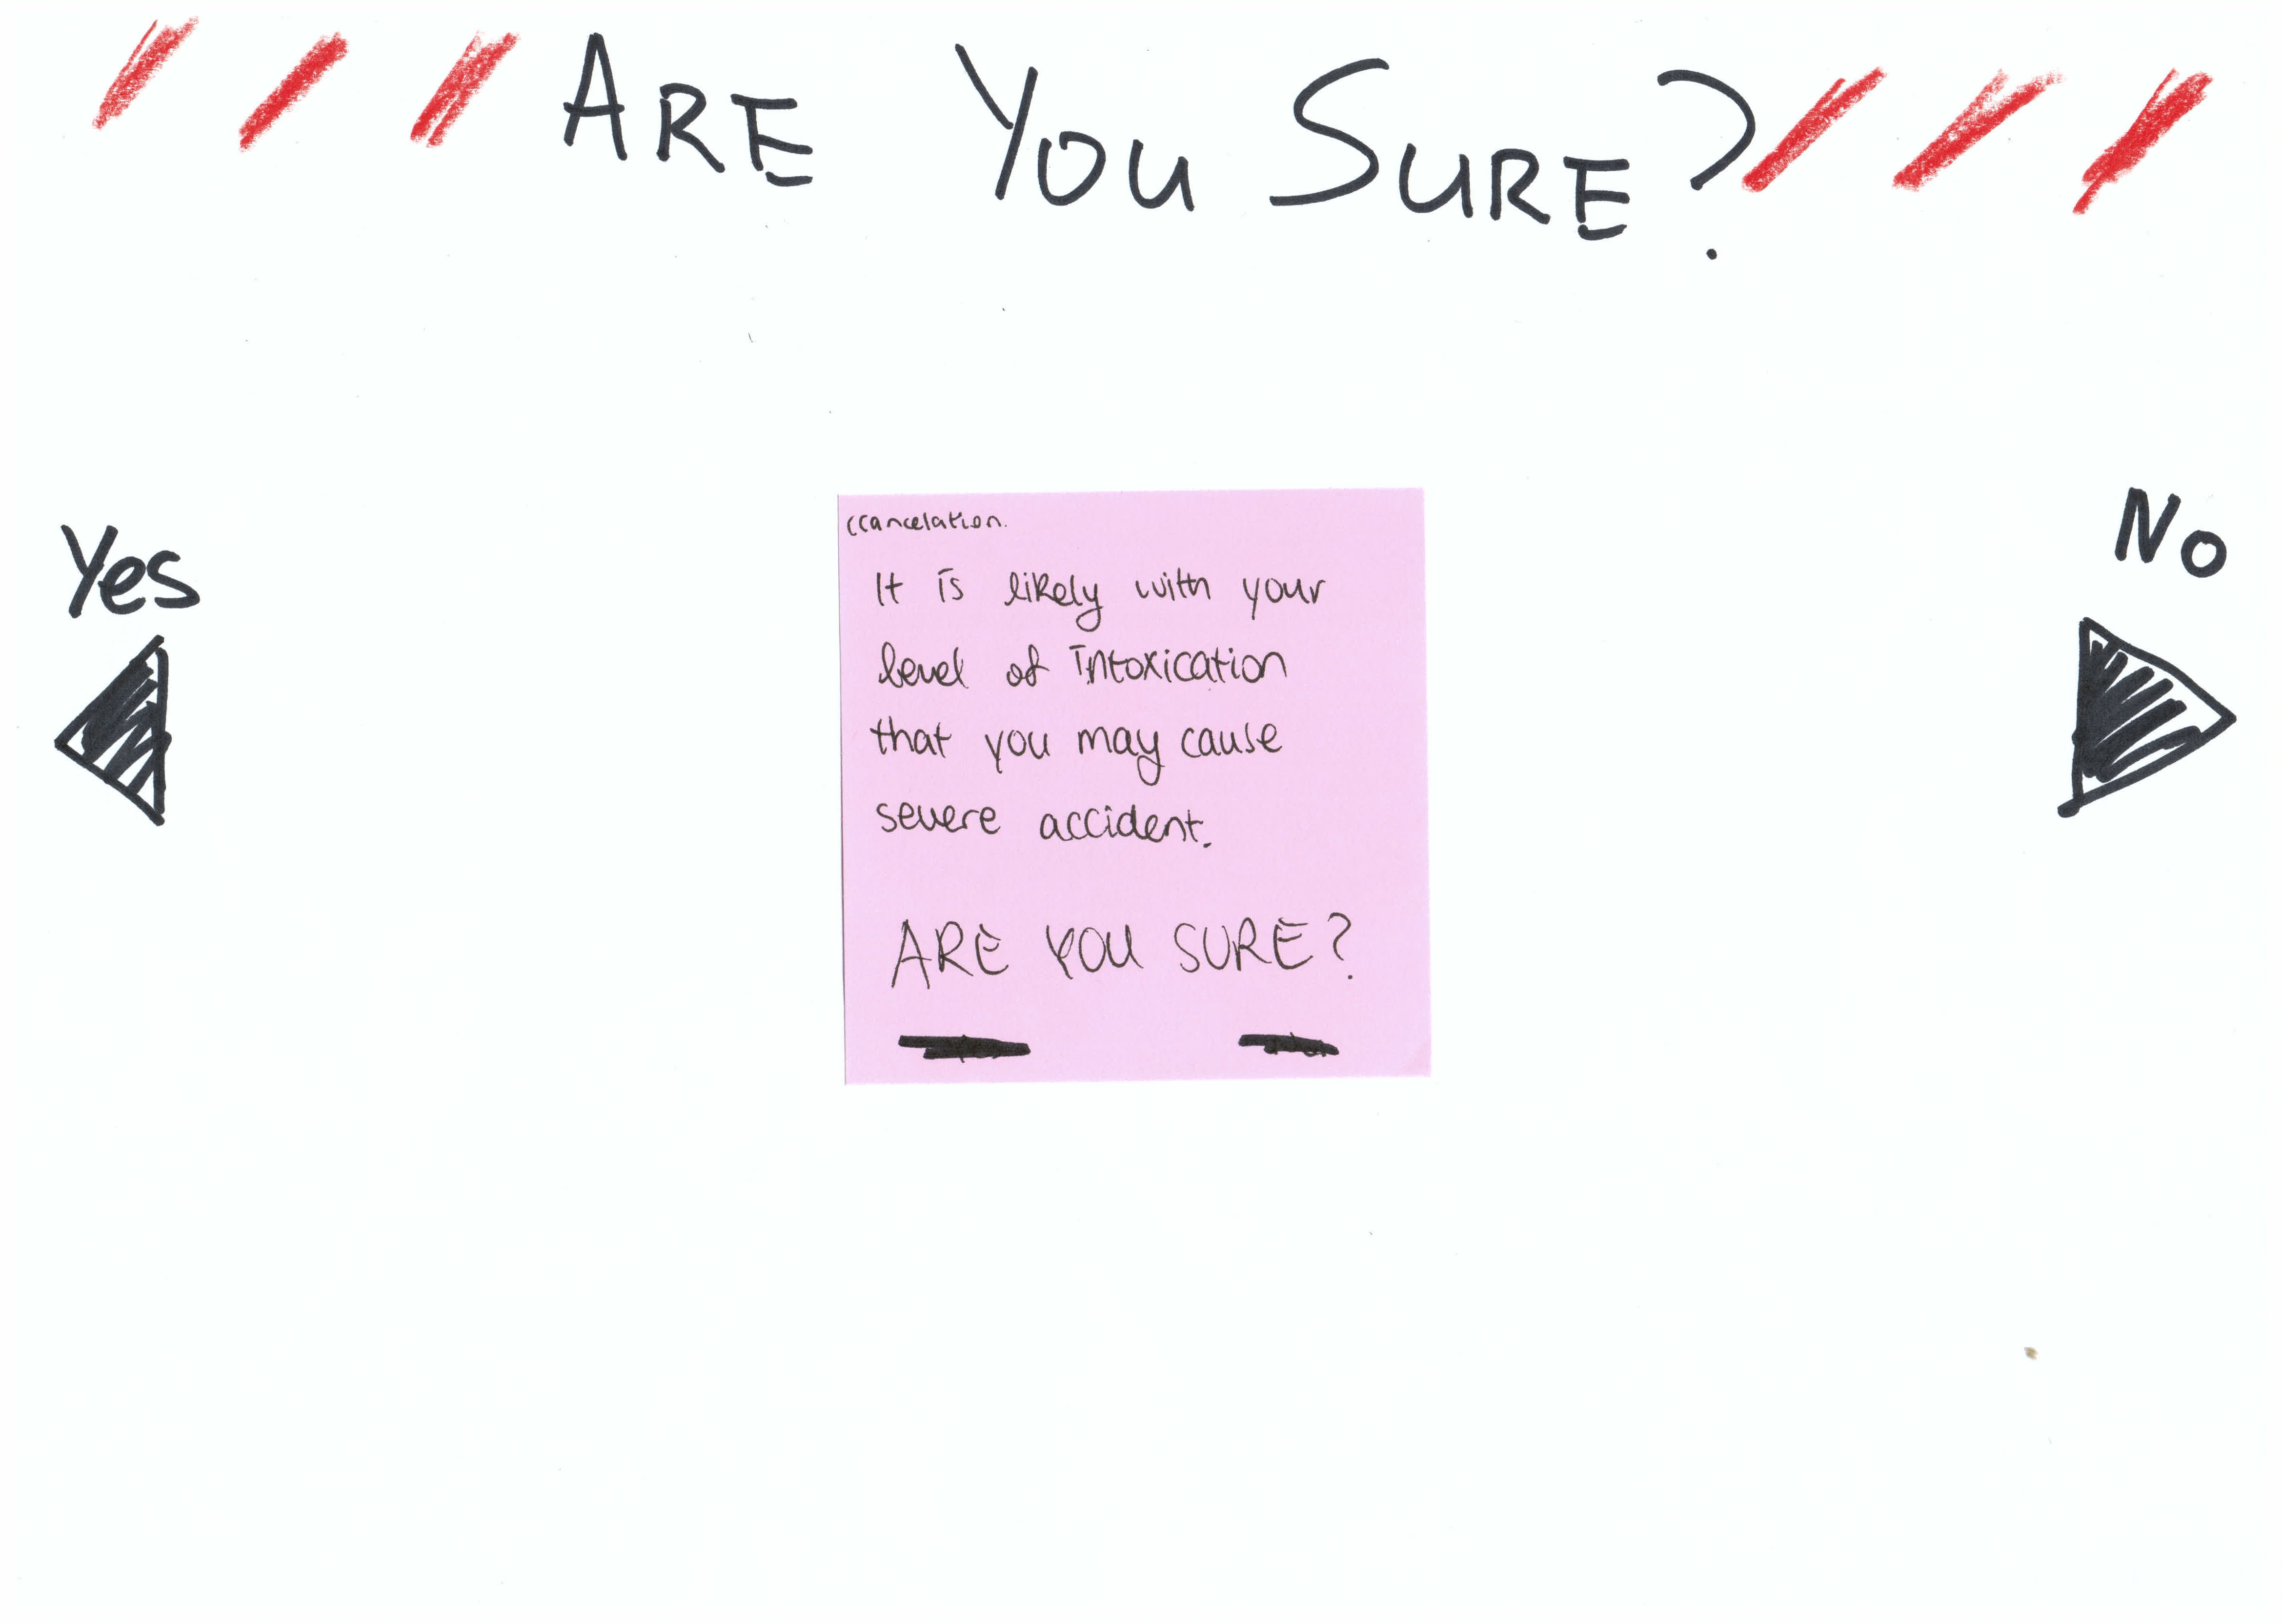 ARE YOU SURE?
Yes
No
(cancelation.
It is likely with your
level of intoxication
that you may cause
severe accident.
ARE YOU SURE?